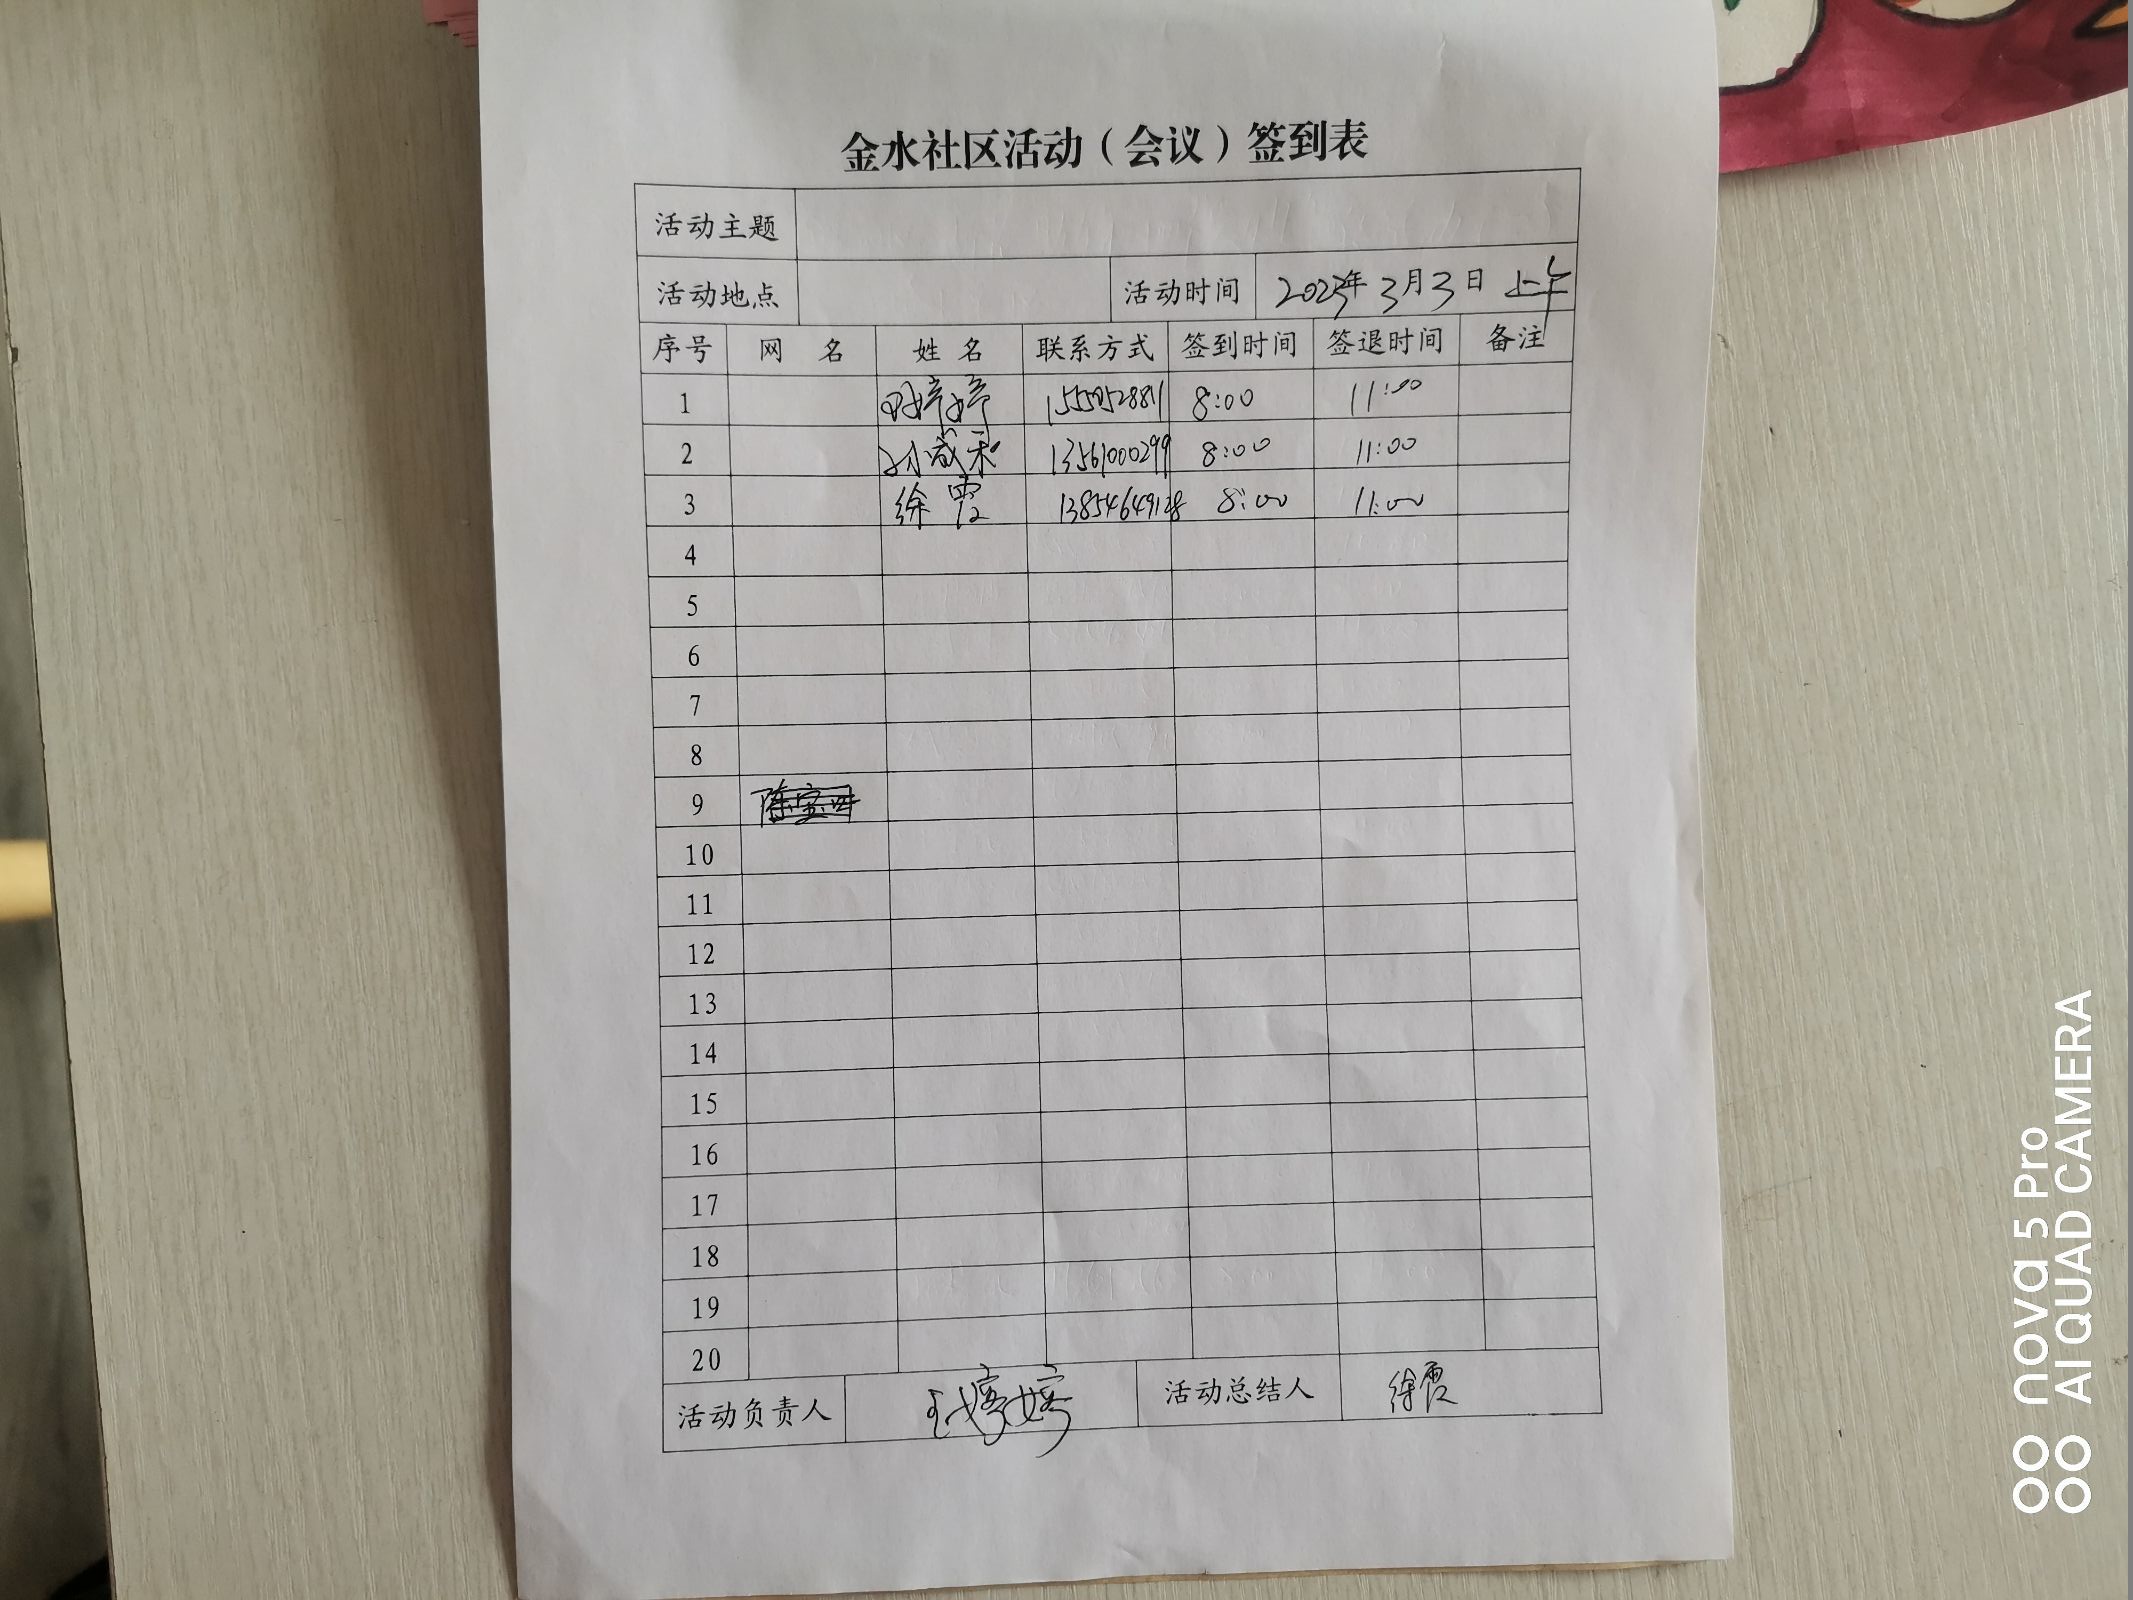 金水社区活动（会议）签到表
活动主题
活动地点 活动时间 2023年3月3日 上午
序号 网 名 姓 名 联系方式 签到时间 签退时间 备注
1 8:00 11:00
2 13561000299 8:00 11:00
3 徐霞 13854649128 8:00 11:00
4
5
6
7
8
9
10
11
12
13
14
15
16
17
18
19
20
活动负责人 王婷婷 活动总结人 徐霞
nova 5 Pro
AI QUAD CAMERA